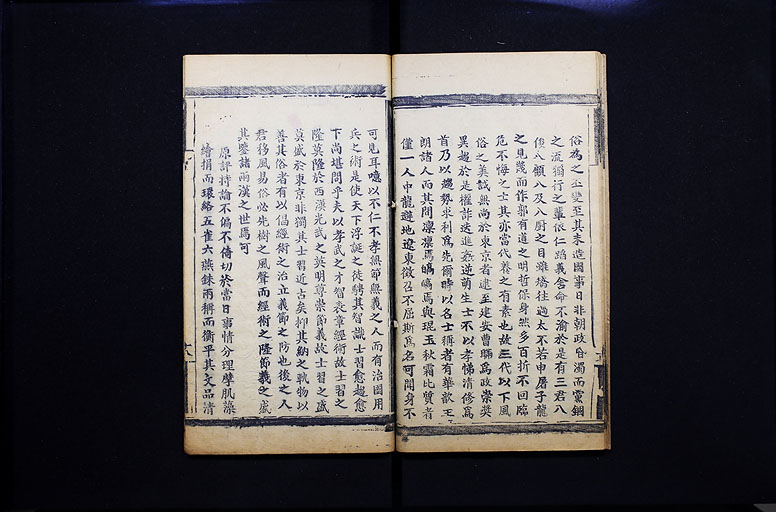 俗為之丕變至其末造國事日非朝政昏濁而黨錮
之流獨行之輩依仁蹈義舍命不渝於是有三君八
俊八顧八及八廚之目雖矯往過太不若申屠子龍
之見幾而作郭有道之明哲保身然多百折不回臨
危不悔之士其亦當代養之有素也故三代以下風
俗之美誠無尚於東京者逮至建安曹瞞為政崇獎
異趨於是權詐迭進姦逆萌生士不以孝悌清修為
首乃以趨勢求利為先爾時以名士稱者有華歆王
朗諸人而其間凜凜焉皜皜焉與琨玉秋霜比質者
僅一人中龍避地遼東徵召不屈斯為名可聞身不
可見耳噫以不仁不孝無節無義之人而有治國用
兵之術是使天下浮誕之徒騁其智識士習愈趨愈
下尚堪問乎夫以孝武之才智表章經術故士習之
隆莫隆於西漢光武之英明尊崇節義故士習之盛
莫盛於東京非獨其士習近古矣抑其納之軌物以
善其俗者有以倡經術之治立義節之防也後之人
君移風易俗必先樹之風聲而經術之隆節義之盛
其鑒諸兩漢之世焉可
原評持論不偏不倚切於當日事情分理擘肌藻
繪捐而環絡五雀六燕銖兩稱而衡平其文品清